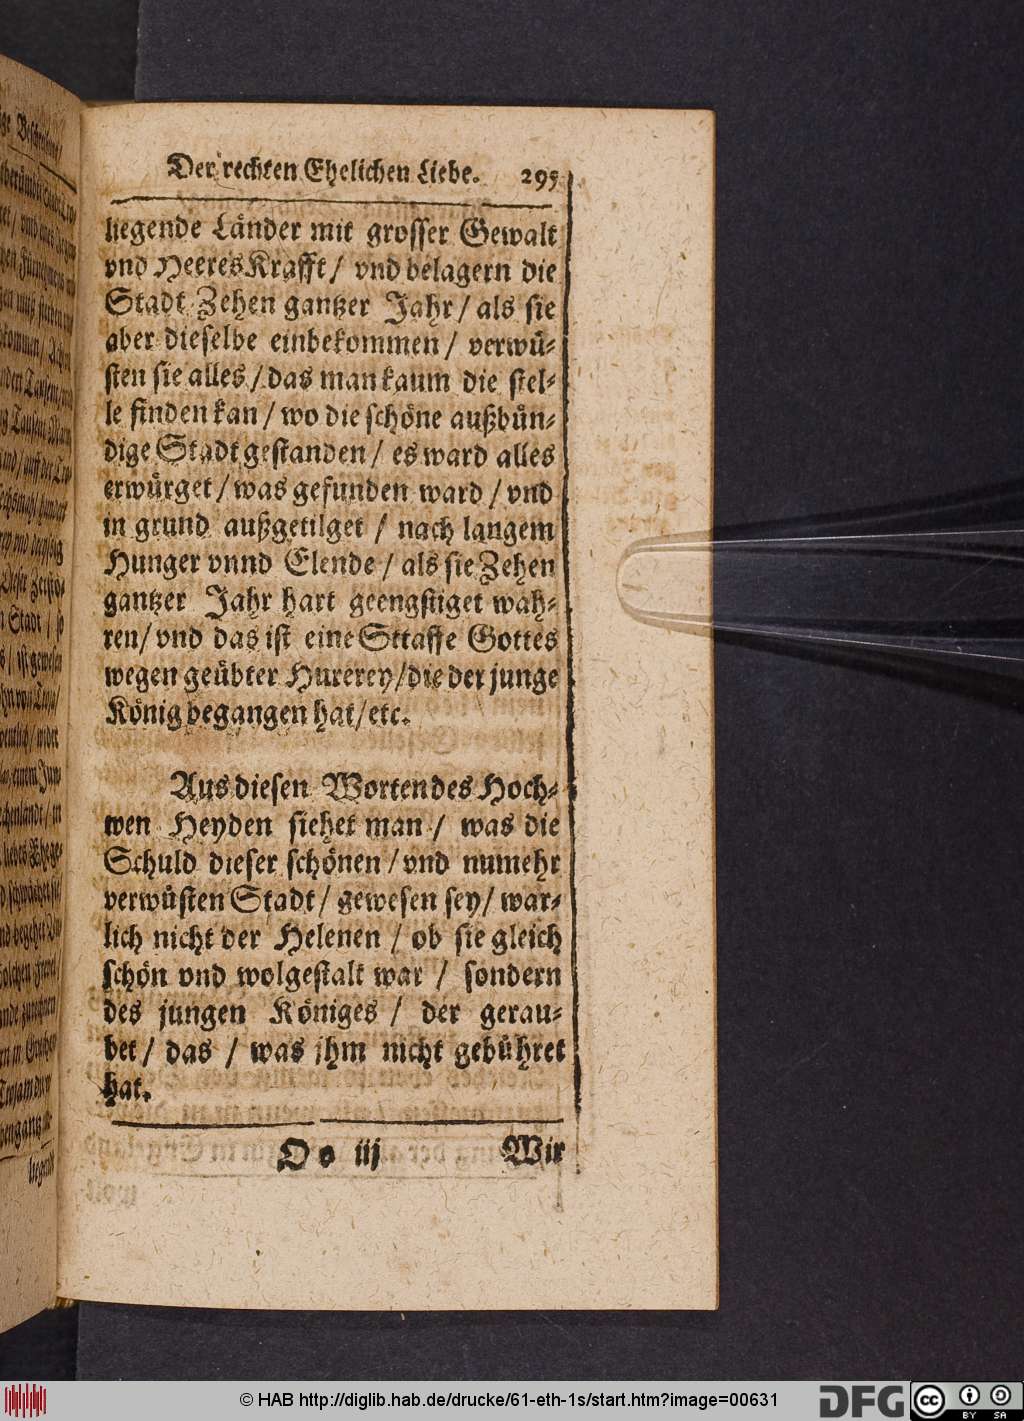 Der rechten Ehelichen Liebe. 295
liegende Länder mit grosser Gewalt
vnd HeeresKrafft / vnd belagern die
Stadt Zehen gantzer Jahr / als sie
aber dieselbe einbekommen / verwü-
sten sie alles / das man kaum die stel-
le finden kan / wo die schöne außbün-
dige Stadt gestanden / es ward alles
erwürget / was gefunden ward / vnd
in grund außgetilget / nach langem
Hunger vnnd Elende / als sie Zehen
gantzer Jahr hart geengstiget wah-
ren / vnd das ist eine Straffe Gottes
wegen geübter Hurerey / die der junge
König begangen hat / etc.
Aus diesen Worten des Hoch-
wen Heyden siehet man / was die
Schuld dieser schönen / vnd numehr
verwüsten Stadt / gewesen sey / war-
lich nicht der Helenen / ob sie gleich
schön vnd wolgestalt war / sondern
des jungen Königes / der gerau-
bet / das / was ihm nicht gebühret
hat.
Oo iij Wir
© HAB http://diglib.hab.de/drucke/61-eth-1s/start.htm?image=00631
DFG
cc BY SA